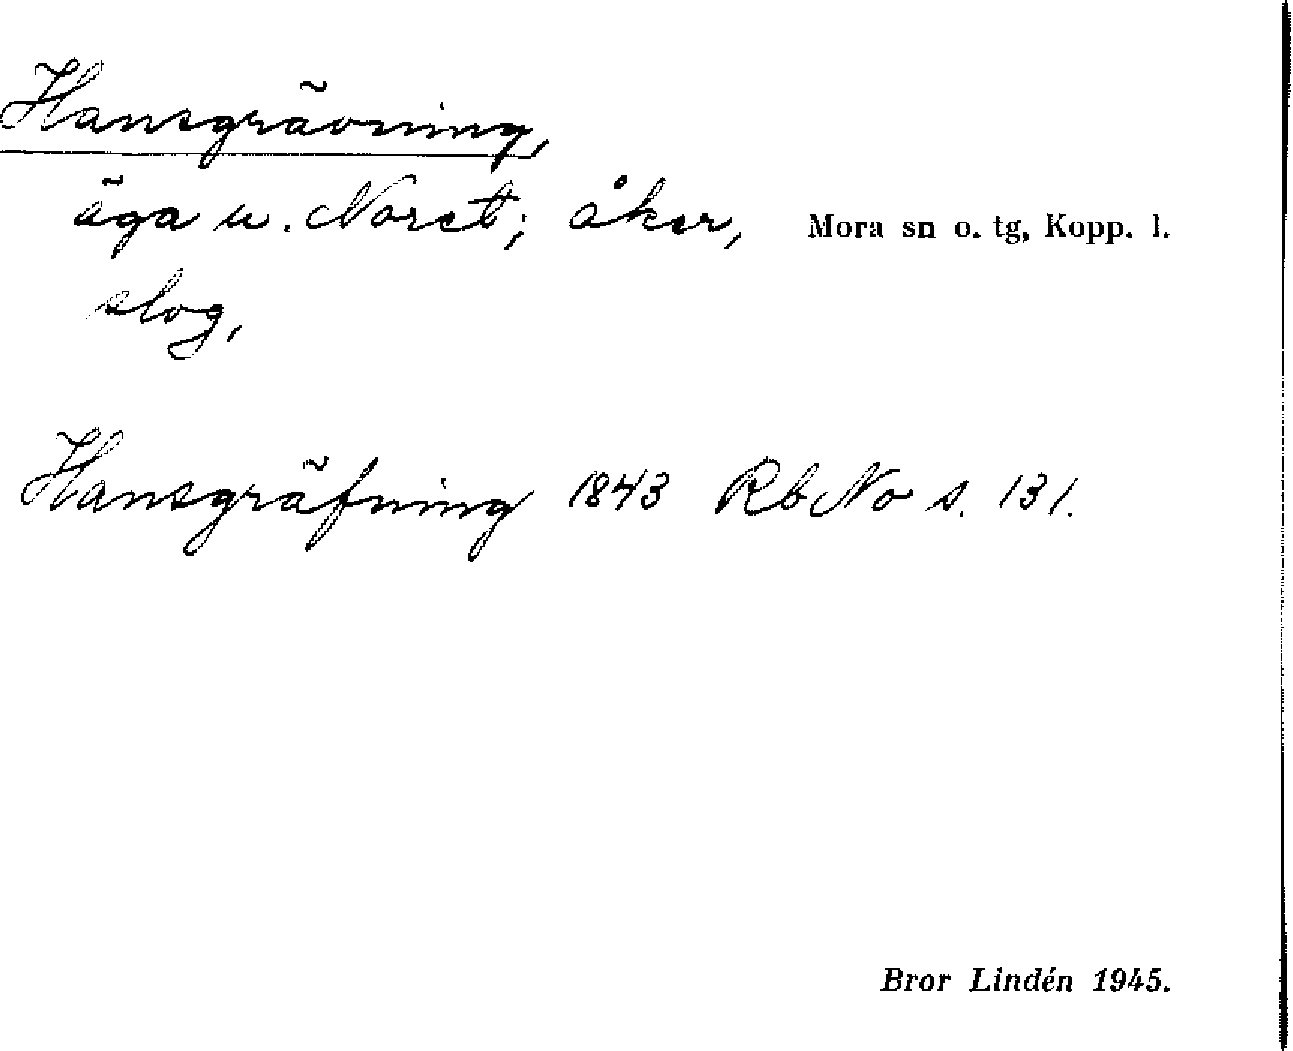 Hansgrävning,
äga u. Noret; åker, Mora sn o. tg, Kopp. l.
slog,
Hansgräfning 1843 Rb No s. 131.
Bror Lindén 1945.